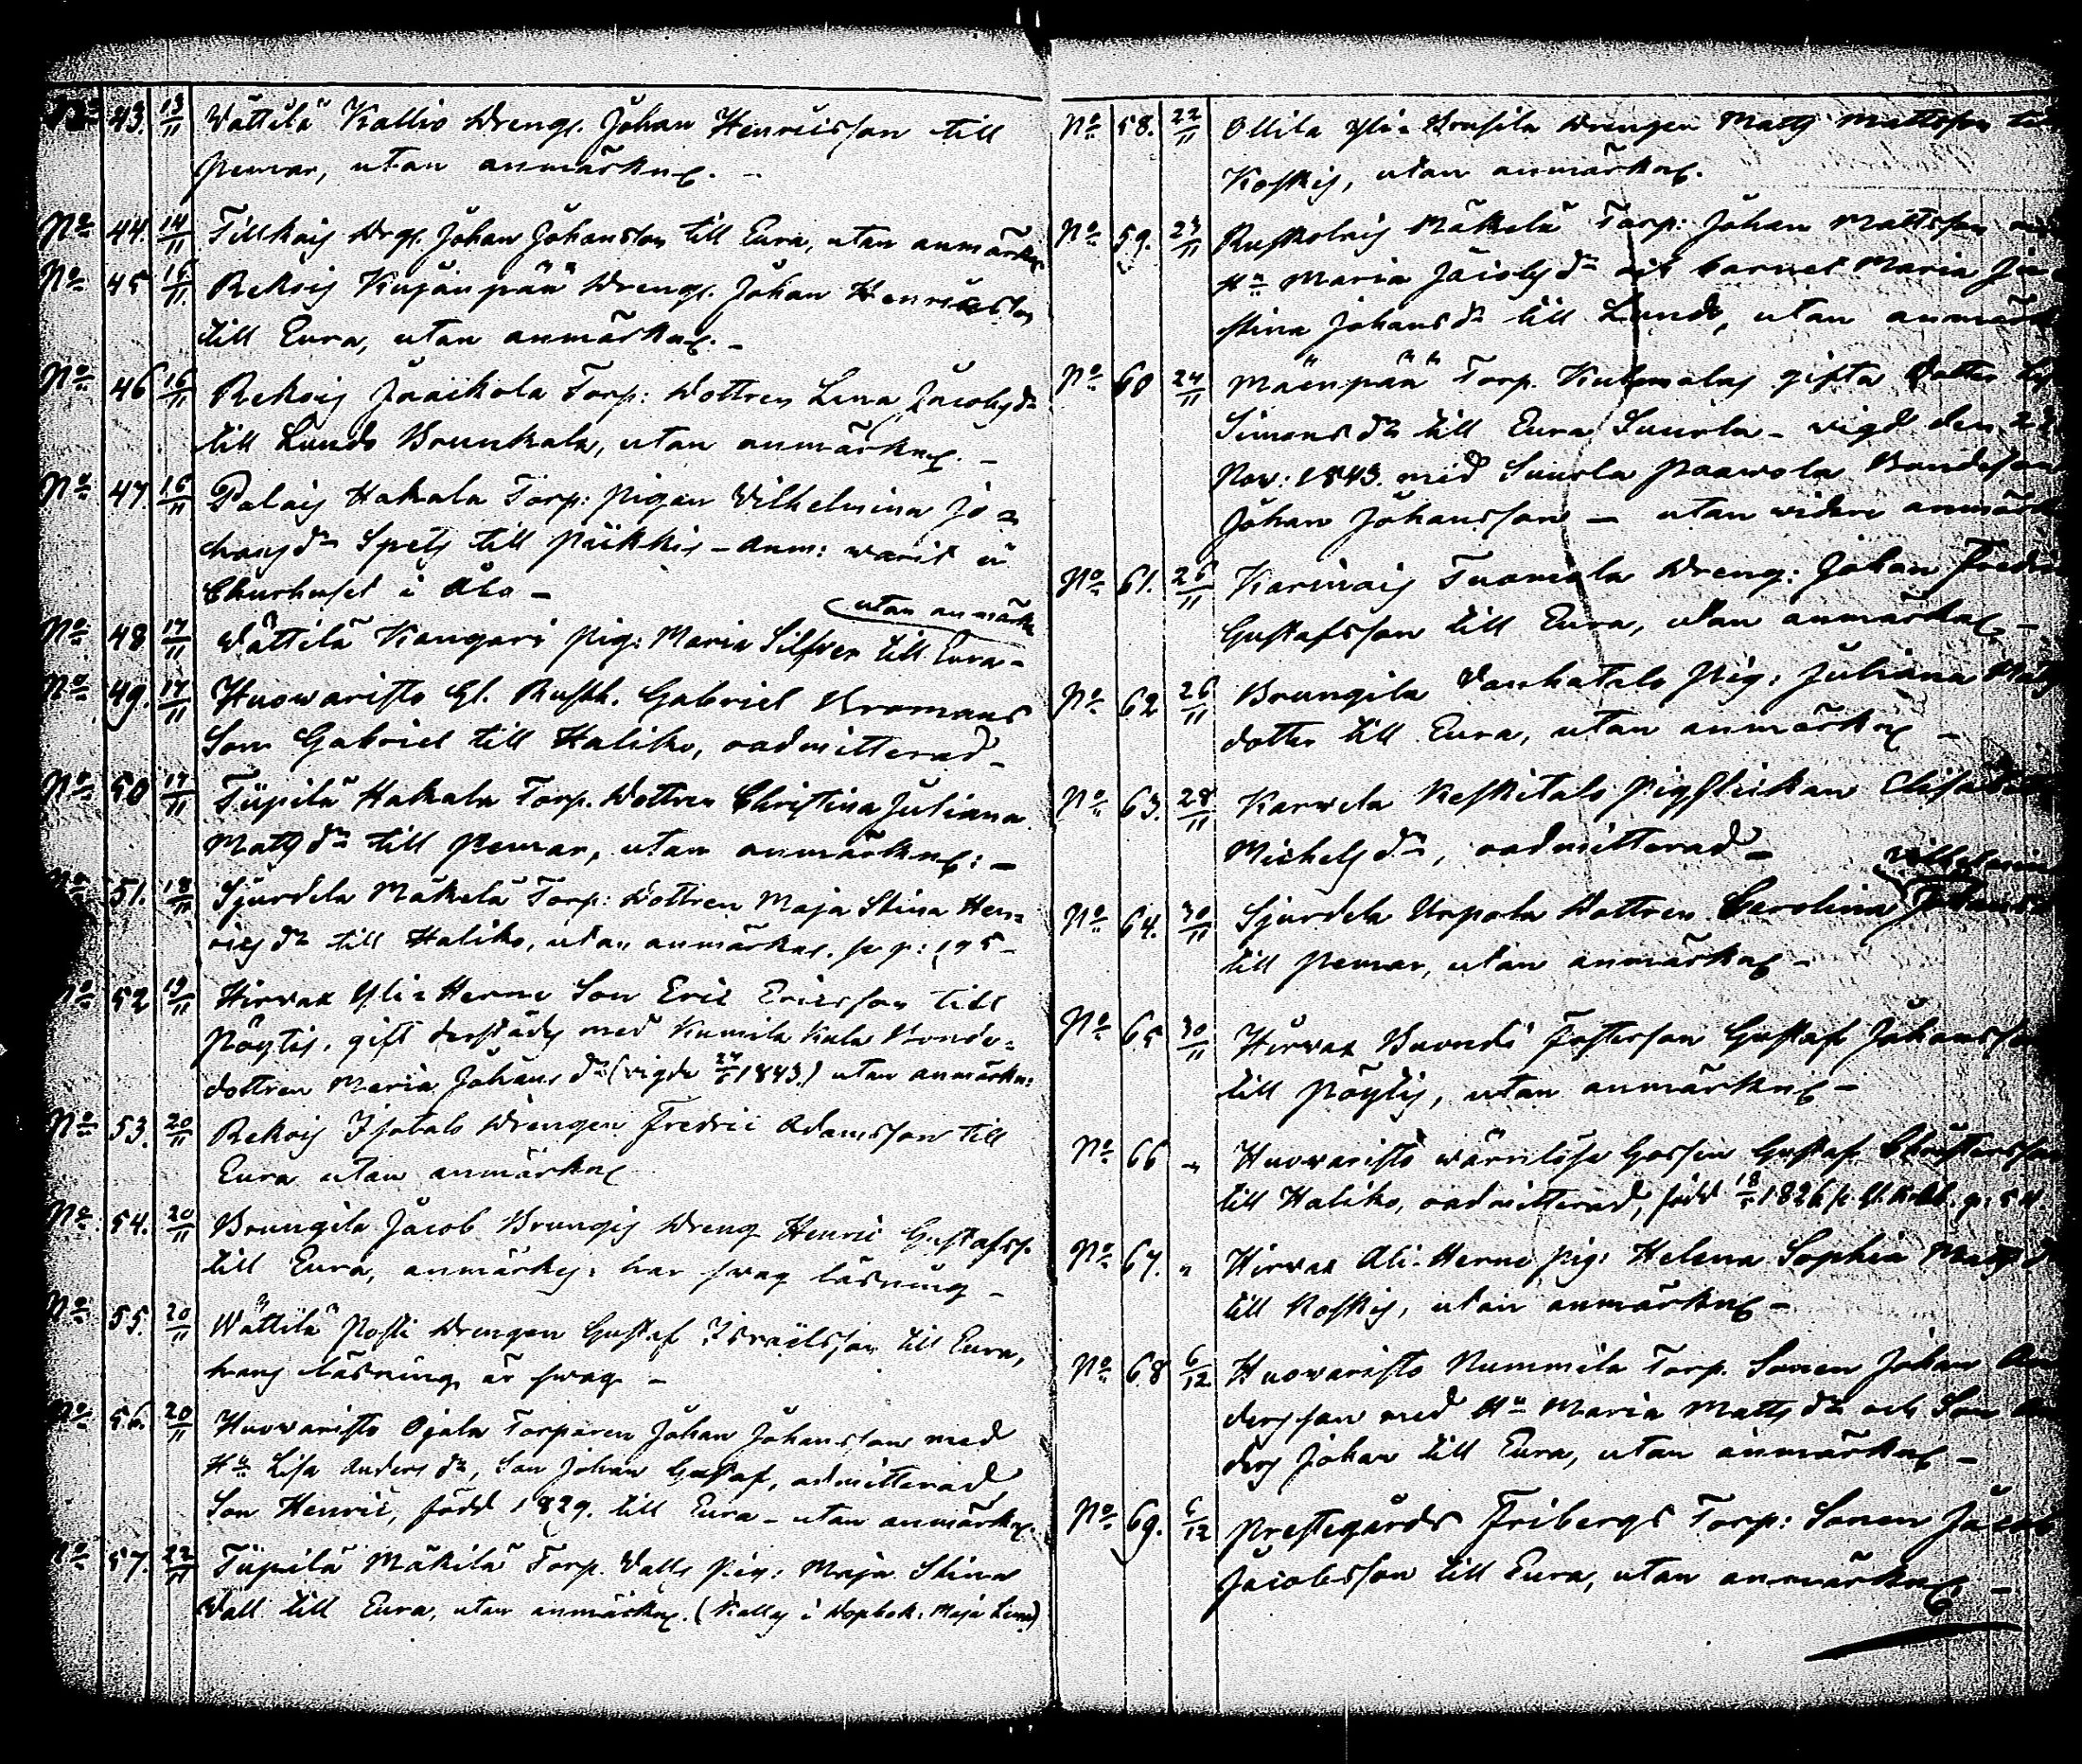 No 43. 13/11 Wättilä Kallio Drengs. Johan Henricsson till
Pemar, utan anmärkng. -
No 44. 14/11 Tillkois Drgs. Johan Johansson till Eura, utan anmärkn
No 45 16/11 Rekois Kujanpää Drengs. Johan Henricsson
till Eura, utan anmärkng. -
No 46 16/11 Rekois Jaakola Torp: Dottren Lena Jacobsdr
till Lundo Brunkala, utan anmärkng. -
No 47. 16/11 Palais Hakala Torp: pigan Wilhelmina Jo=
hansdr Spets till Piikkis - anm: warit å
Churhuset i Åbo -
utan anmärkn
No 48 17/11 Wättilä Kangari Pig: Maria Silfver till Eura -
No 49. 17/11 Huowaristo Gl. Rusth. Gabriel Kromans
Son Gabriel till Haliko, oadmitterad -
No 50 17/11 Tüpilä Hakala Torp. Dottren Christina Juliana
Mattsdr till Pemar, utan anmärkng: -
No 51. 18/11 Sjurdela Mäkelä Torp: Dottren Maja Stina Hen=
ricsdr till Haliko, utan anmärkng. p: 195 -
No 52 19/11 Hirvax Yli=Herne Son Eric Ericsson till
Pöytis, gift derstädes med Kumila Kula Bonde=
dottren Maria Johansdr (vigde 1843.) utan anmärkn:
No 53. 20/11 Rekois Isotalo Drengen Fredric Adamsson till
Eura utan anmärkng
No 54. 20/11 Brungila Jacob Brungis Dreng Henric Gustafss.
till Eura, anmärkes: har swag läsning -
No 55. 20/11 Wättilä Posti Drengen Gustaf Israelsson till Eura,
hans läsning är swag -
No 56. 20/11 Huowaristo Ojala Torparen Johan Johansson med
Hu Lisa Andersdr, Son Johan Gustaf, admitterad
Son Henric, född 1829. till Eura - utan anmärkng.
No 57. 22/11 Tüpilä Mäkilä Torp. Walls Pig: Maja Stina
Wall till Eura, utan anmärkng. (Kallas i Dopbok: Maja Lena)
No 58. 22/11 Ollila Yli= Drengen Matts Mattsson till
Koskis, utan anmärkng.
No 59. 23/11 Ruskolais Mäkelä Torp: Johan Mattsson
Hu Maria Jacobsdr och barnet Maria
stina Johansdr till Lundo, utan anmärk
No 60 24/11 Mäenpää Torp. gifta Dotter
Simonsdr till Eura Suurla - vigd den
Nov: 1843. med Suurla Paawola Bondeson
Johan Johansson - utan widare anmärk
No 61. 26/11 Karinais Tuomola Dreng: Johan Fredr
Gustafsson till Eura, utan anmärkng -
No 62 26/11 Brungila Wanhatalo Pig: Juliana Matts
dotter till Eura, utan anmärkng -
No 63. 28/11 Karwela Keskitalo Pigflickan Elisabet
Michelsdr, oadmitterad -
Wilhelmin
No 64. 30/11 Sjurdela Urpola Dottren Carolina Johansd
till Pemar, utan anmärkng -
No 65 30/11 Hirvax Fosterson Gustaf Johansson
till Pöytis, utan anmärkng -
No 66 " Huowaristo wärnlösa Gossen Gustaf
till Haliko, oadmitterad, född 1826
No 67. " Hirvax Ali=Herne Pig: Helena Sophia Mattsd
till Koskis, utan anmärkng -
No 68 6/12 Huowaristo Nummila Torp. Sonen Johan An
dersson med Hu Maria Mattsdr och Son An
ders Johan till Eura, utan anmärkng -
No 69. 6/12 Prestegårds Fribergs Torp: Sonen Jacob
Jacobsson till Eura, utan anmärkng -